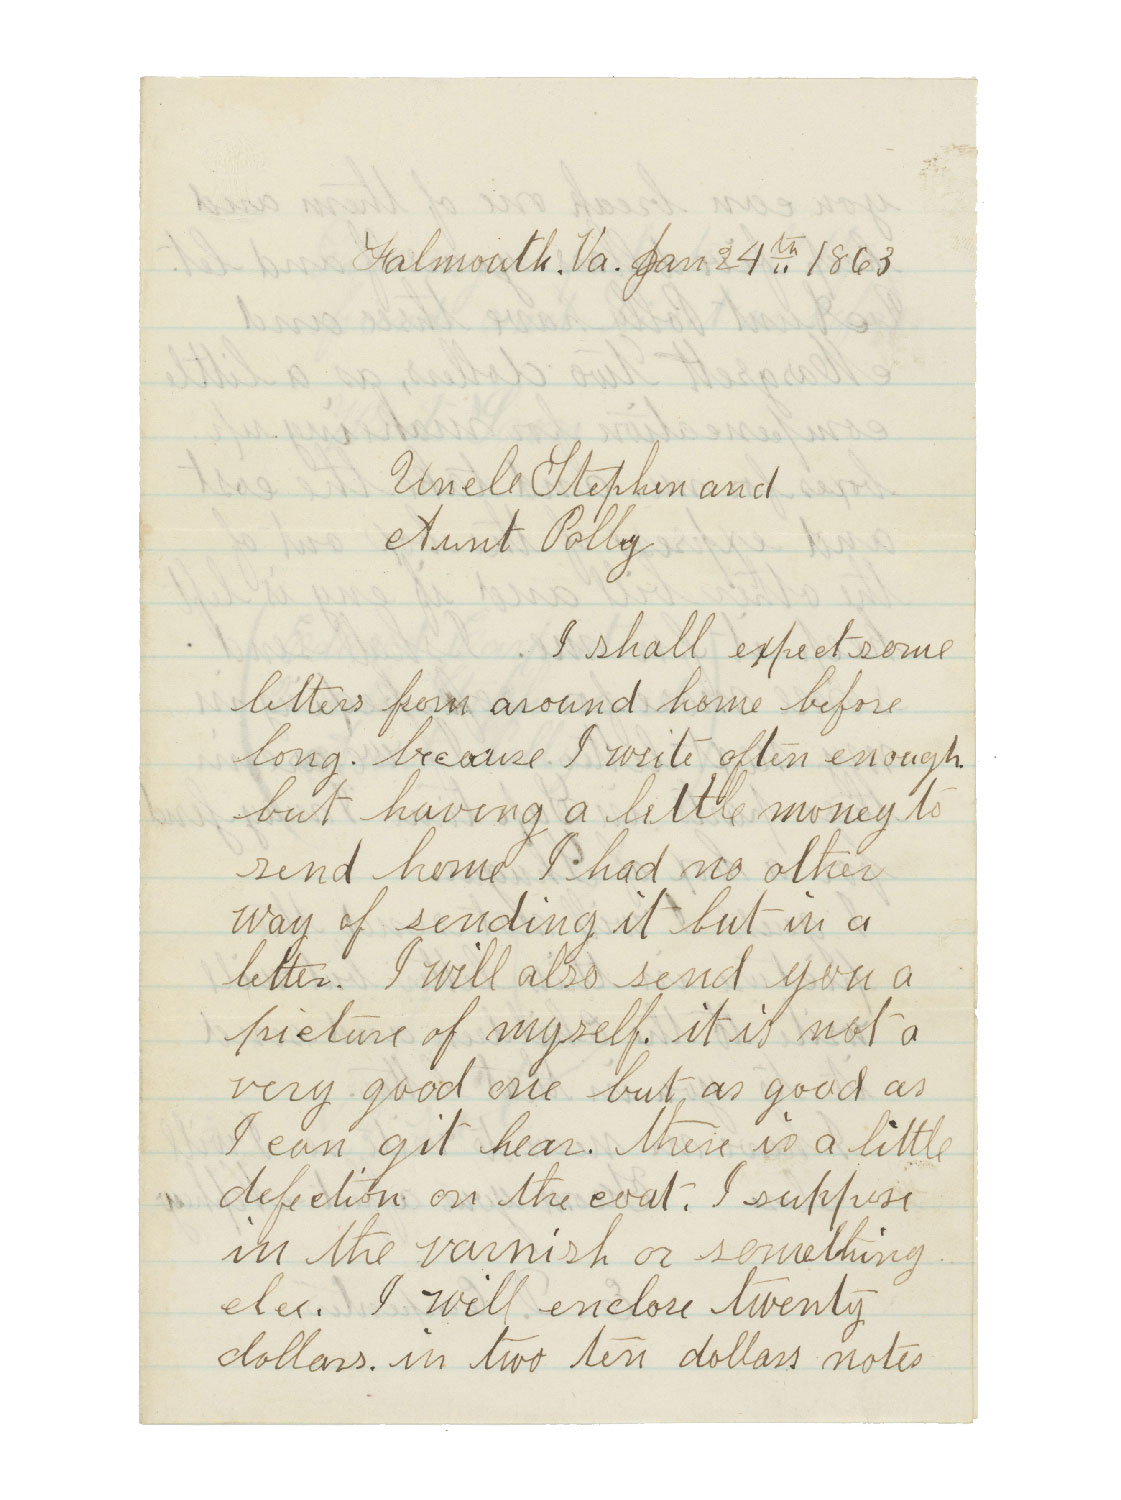 Falmouth. Va. Jan 24th 1863
Uncle Stephen and
Aunt Polly
I shall expect some
letters from around home before
long. because I write often enough
but having a little money to
send home I had no other
way of sending it but in a
letter. I will also send you a
picture of myself. it is not a
very good one but as good as
I can git hear. there is a little
defection on the coat. I suppose
in the varnish or something
elec. I will enclose twenty
dollars. in two ten dollars notes